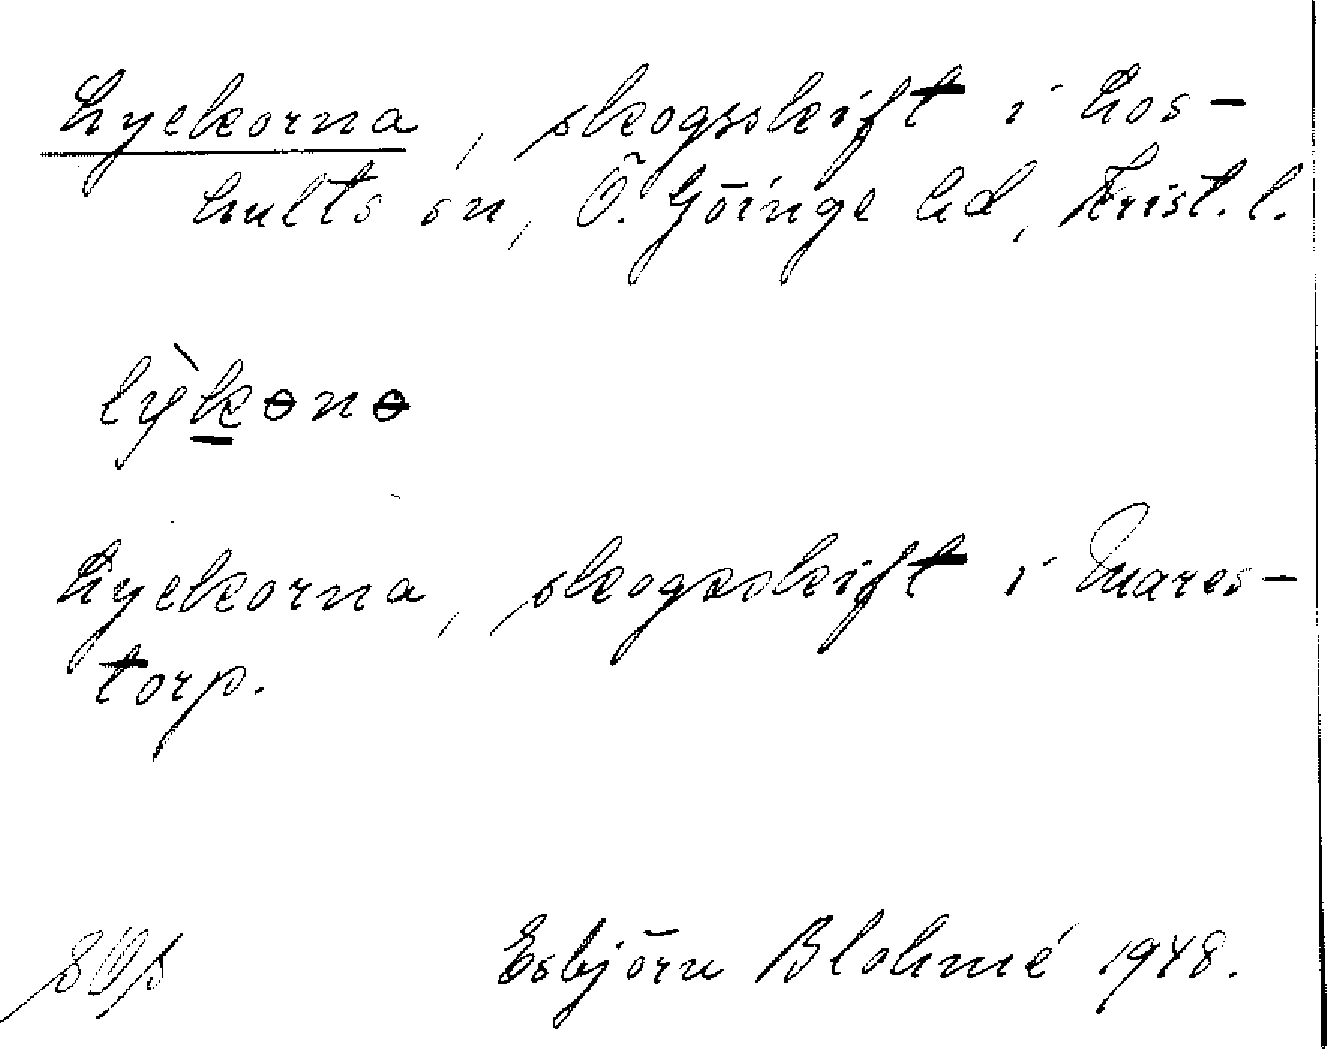 Lyckorna, skogsskift i Los-
hults sn, Ö. Göinge hd, Krist. l.
lỳkɵnɵ
Lyckorna, skogsskift i Mares-
torp.
Esbjörn Blohmé 1948.